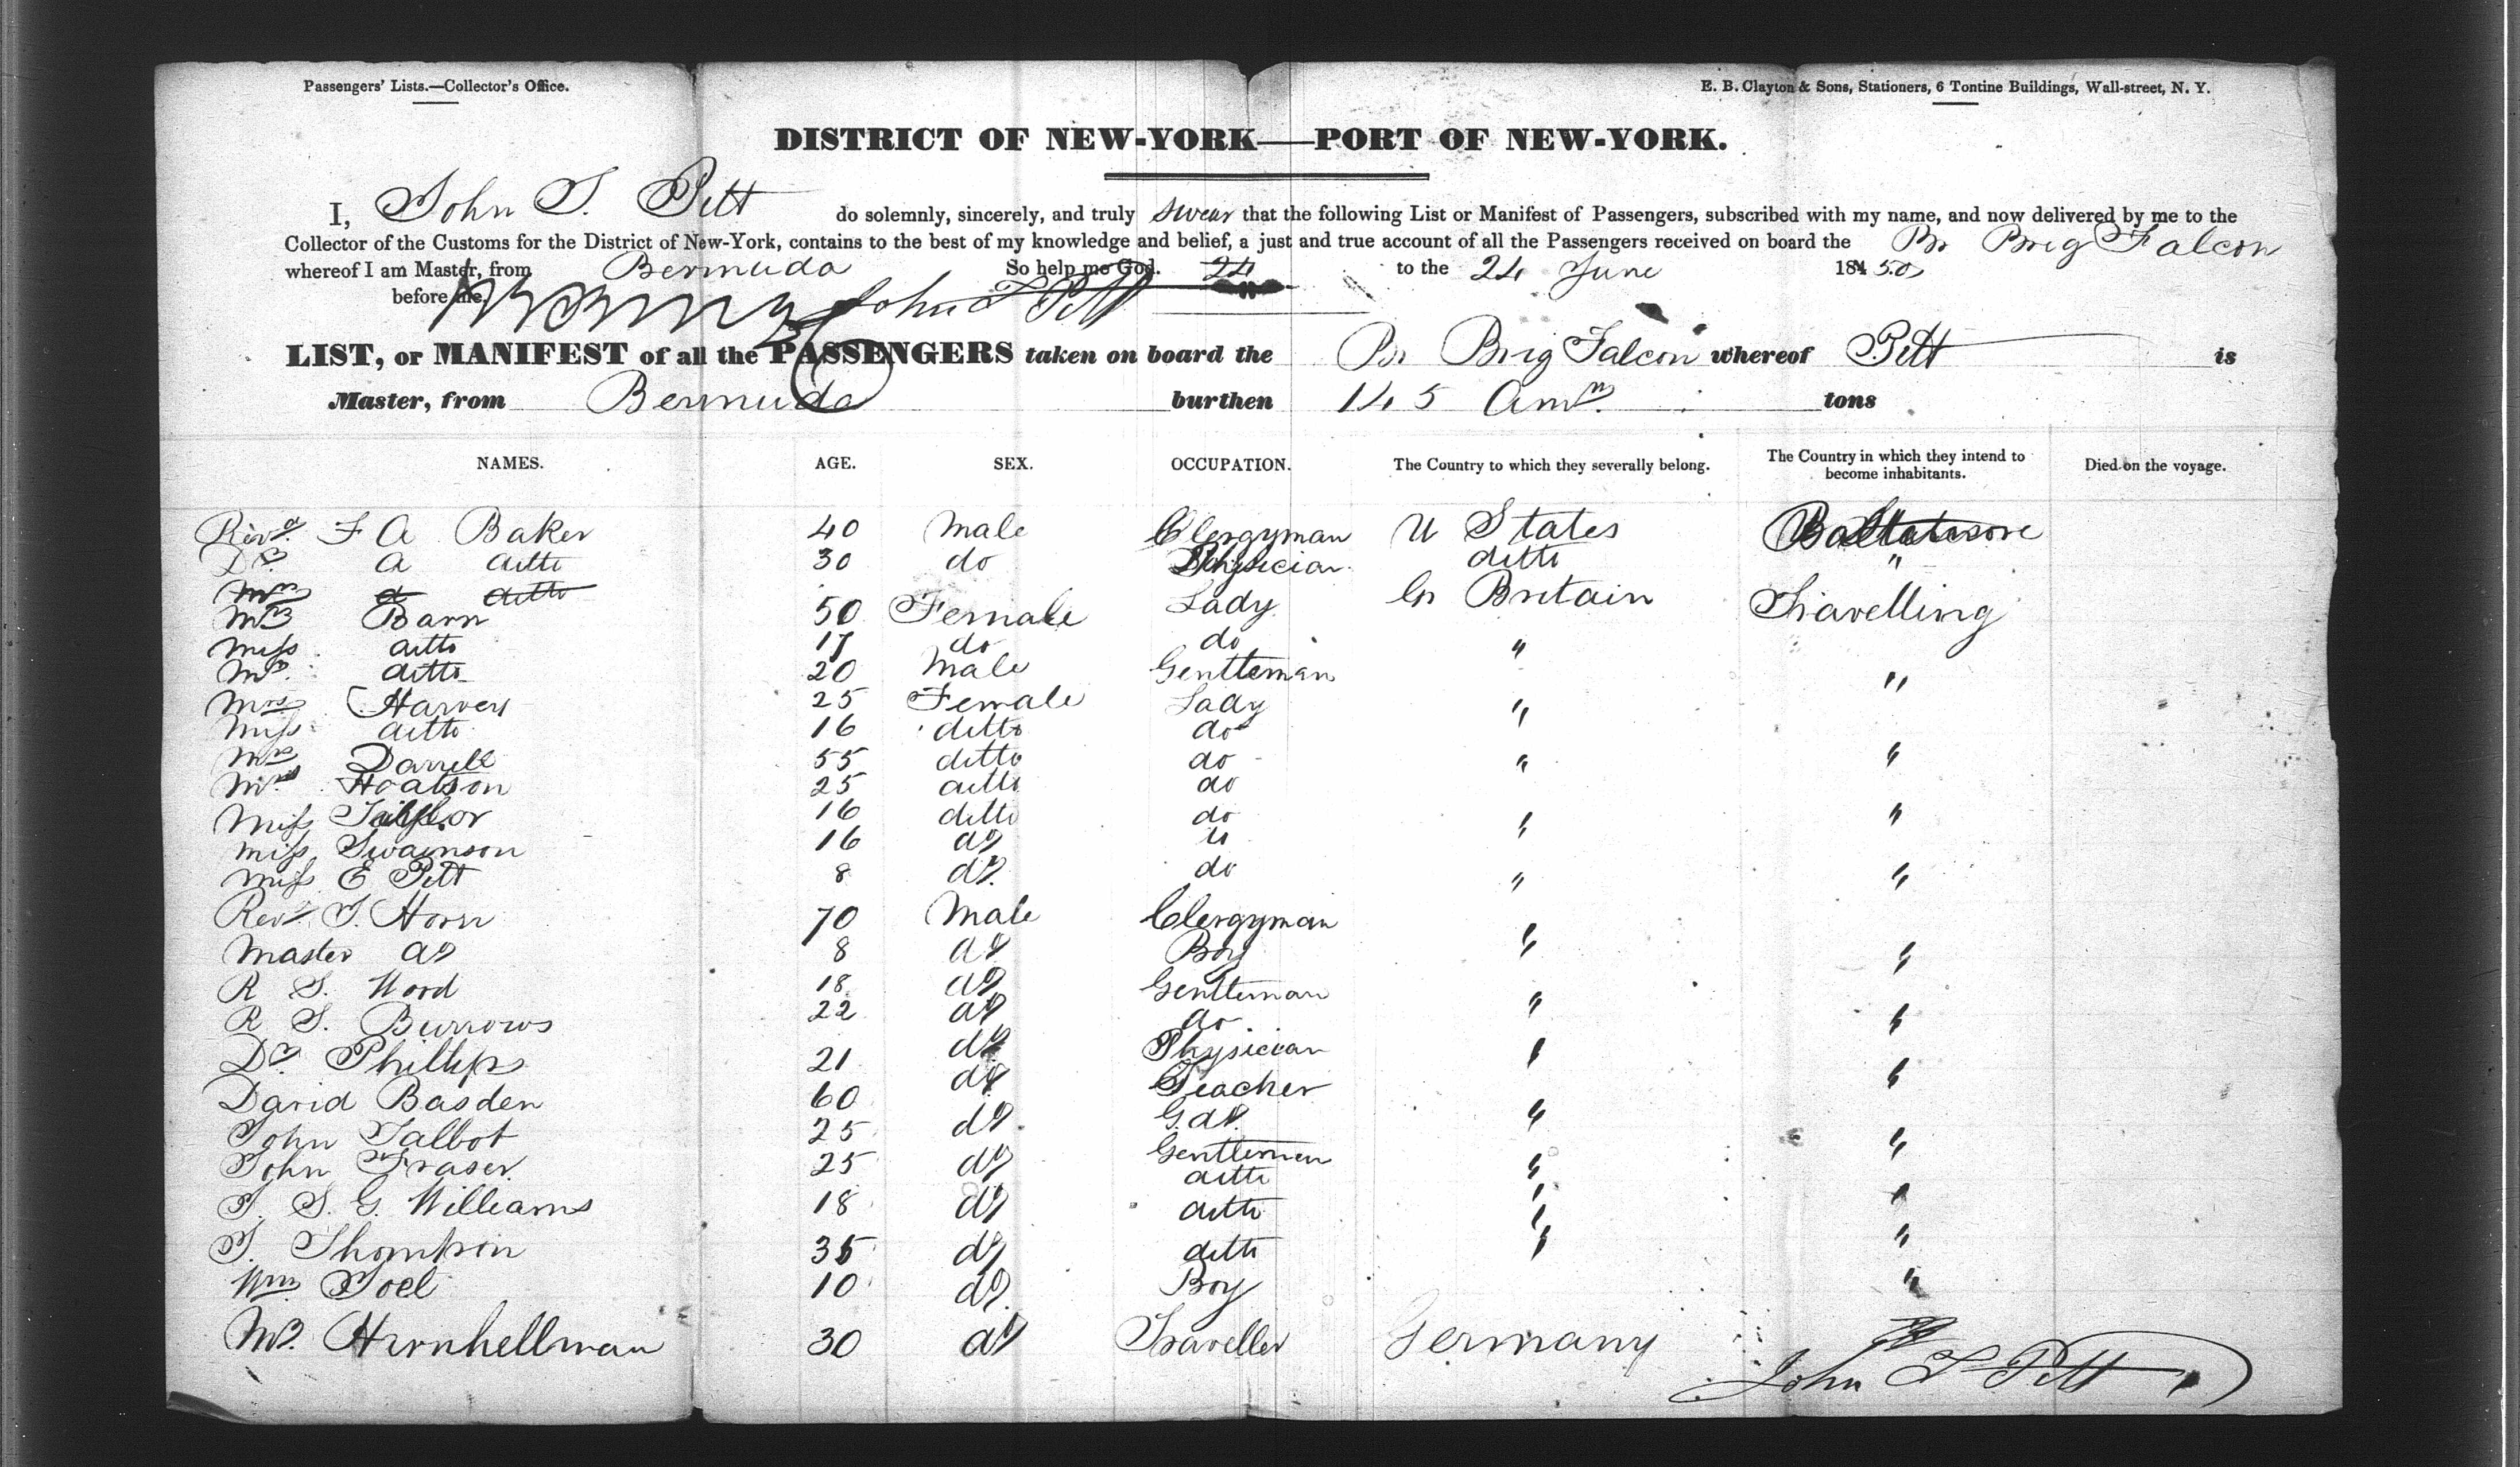 Passengers' Lists.—Collector's Office.
E. B. Clayton & Sons, Stationers, 6 Tontine Buildings, Wall-street, N. Y.
DISTRICT OF NEW-YORK——PORT OF NEW-YORK.
I, John S. Pitt do solemnly, sincerely, and truly swear that the following List or Manifest of Passengers, subscribed with my name, and now delivered by me to the
Collector of the Customs for the District of New-York, contains to the best of my knowledge and belief, a just and true account of all the Passengers received on board the Br Brig Falcon
whereof I am Master, from Bermuda So help me God. 24 to the 24 June 1850
before me, John S Pitt
LIST, or MANIFEST of all the PASSENGERS taken on board the Br Brig Falcon whereof Pitt is
Master, from Bermuda burthen 145 Amn. tons
NAMES. AGE. SEX. OCCUPATION. The Country to which they severally belong. The Country in which they intend to become inhabitants. Died on the voyage.
Revd. F A Baker 40 Male Clergyman U States
Dr A ditto 30 do Physician ditto "
Mrs a ditto
Mrs Barn 50 Female Lady Gr Britain Travelling
Miss ditto 17 do do "
Mr. ditto 20 Male Gentleman "
Mrs Harvey 25 Female Lady "
Miss ditto 16 ditto do
Mrs Darrell 55 ditto do " "
Mrs Hoatson 25 ditto do
Miss 16 ditto do "
Miss Swainson 16 do do "
Miss E Pitt 8 do. do " "
Revd. T. Horn 70 Male Clergyman
Master do 8 do Boy " "
R S. Wood 18 do Gentleman
R S. Burrows 22 do do " "
Dr. Phillips 21 do Physician "
David Basden 60 do Teacher "
John Talbot 25 do G. do. "
John Fraser 25 do Gentleman " "
ditto
T. S. G. Williams 18 do ditto " "
T. Thompson 35 do ditto " "
Wm Joel 10 do. Boy "
Mr. Hirnhellman 30 do Traveller Germany
John S Pitt